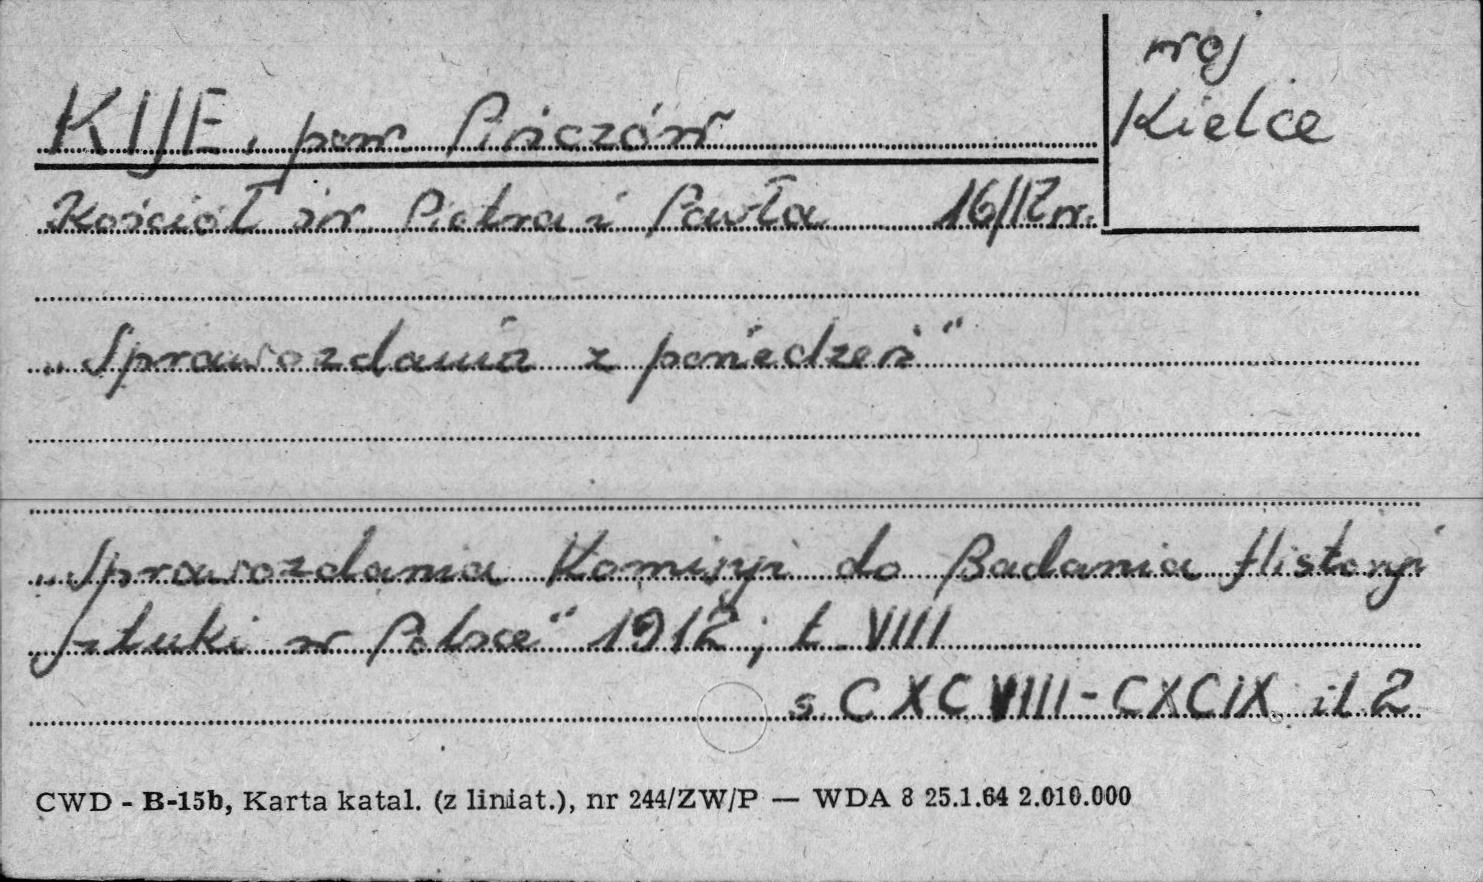 woj
Kielce
KIJE, pow. Pińczów
Kościół św. Piotra i Pawła 16/17 w.
„Sprawozdania z posiedzeń"
„Sprawozdania Komisyi do Badania Historyi
Sztuki w Polsce" 1912, t. VIII
s. CXCVIII-CXCIX il 2
CWD - B-15b, Karta katal. (z liniat.), nr 244/ZW/P — WDA 8 25.1.64 2.010.000